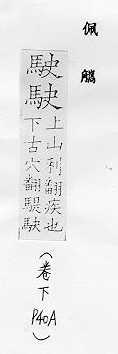 佩觿
駛駃
上山利翻疾也
下古穴翻騠駃
(卷下 P40A)